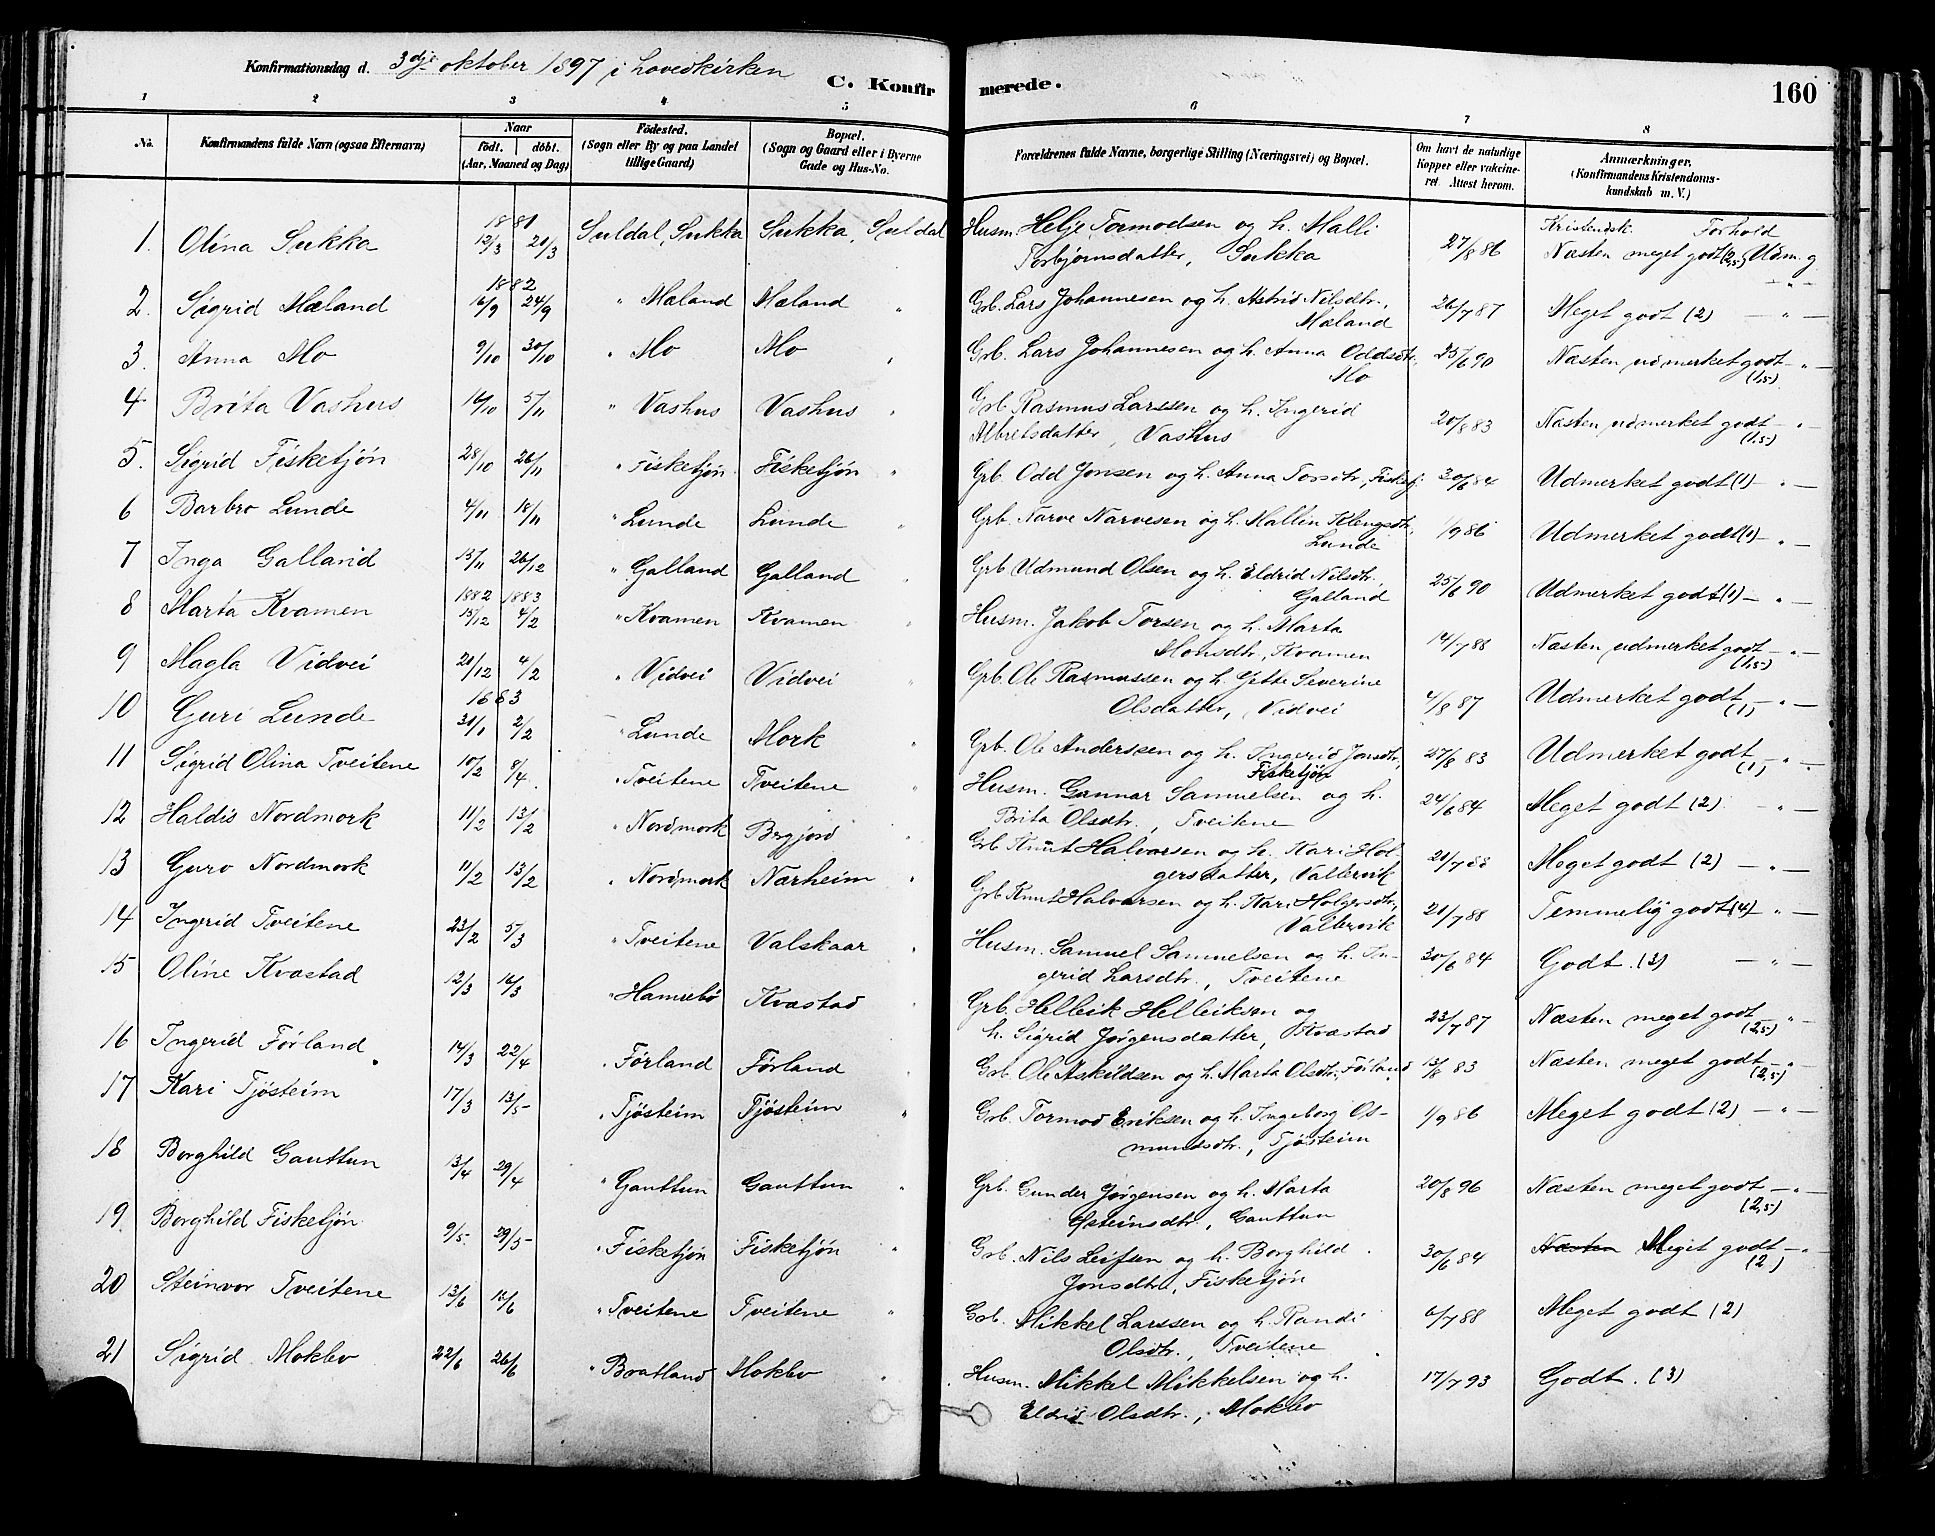 Konfirmationsdag d. 3dje oktober 1897 i hovedkirken
C. Konfirmerede.
160
1 2 3 4 5 6 7 8
No. Konfirmandens fulde Navn (ogsaa Efternavn) Naar født. døbt. (Aar, Maaned og Dag) Födested. (Sogn eller By og paa Landet tillige Gaard) Bopæl. (Sogn og Gaard eller i Byerne Gade og Hus-No. Forældrenes fulde Navne, borgerlige Stilling (Næringsvei) og Bopæl. Om havt de naturlige Kopper eller vakcineret. Attest herom. Anmærkninger. (Konfirmandens Kristendomskundskab m. V.)
Kristendsk. Forhold
1. Olina Sukka 1881 12/3 20/3 Suldal, Sukka Sukka, Suldal Husm. Helje Tormodsen og h. Malli
Torbjørnsdatter, Sukka 27/8 86 Næsten meget godt (2,5) Udm. g
2. Sigrid Mæland 1882 16/9 24/9 " Mæland Mæland " Grb. Lars Johannesen og h. Astrid Nilsdtr.,
Mæland 26/7 87 Meget godt (2) — " —
3. Anna Mo 9/10 30/10 " Mo Mo " Grb. Lars Johannesen og h. Anna Oddsdtr.
Mo 25/6 90 Næsten udmerket godt (1,5) — " —
4 Brita Vashus 16/10 5/11 " Vashus Vashus " Grb Rasmus Larssen og h. Ingerid
Albretsdatter, Vashus 20/8 83 Næsten udmerket godt (1,5) — " —
5. Sigrid Fisketjön 28/10 26/11 " Fisketjön Fisketjön " Grb. Odd Jonsen og h. Anna Torsdtr., Fisketj. 30/6 84 Udmerket godt (1) — " —
6 Barbro Lunde 4/11 18/11 " Lunde Lunde " Grb. Narve Narvesen og h. Mallin Klengsdtr,
Lunde 1/9 86 Udmerket godt (1) — " —
7 Inga Galland 15/11 26/12 " Galland Galland " Grb Udmund Olsen og h. Eldrid Nilsdtr.,
Galland 25/6 90 Udmerket godt (1) — " —
8 Marta Kvamen 1882 15/12 1883 4/2 " Kvamen Kvamen " Husm. Jakob Torsen og h. Marta
Monsdtr., Kvamen 14/7 88 Næsten udmerket godt (1,5) — " —
9 Magla Vidvei 20/12 4/2 " Vidvei Vidvei " Grb. Ole Rasmussen og h Gjette Severine
Olsdatter, Vidvei 4/8 87 Udmerket godt (1) — " —
10 Guri Lunde 1883 31/1 2/2 " Lunde Mork " Grb. Ole Anderssen og h. Ingerid Jonsdtr.,
Fisketjön 27/8 83 Udmerket godt (1) — " —
11 Sigrid Olina Tveitene 10/2 8/4 " Tveitene Tveitene " Husm. Gunnar Samuelsen og h.
Brita Olsdtr., Tveitene 24/6 84 Meget godt (2) — " —
12 Haldis Nordmork 11/2 13/2 " Nordmork Bergjord " Grb Knut Halvorsen og h. Kari Hol-
gersdatter, Vallervik 20/7 88 Meget godt (2) — " —
13 Guro Nordmork 11/2 13/2 " Nordmork Nærheim " Grb Knut Halvorsen og h. Kari Holgersdtr,
Vallervik 20/7 88 Temmelig godt (4) — " —
14 Ingerid Tveitene 23/2 5/3 " Tveitene Valskaar " Husm. Samuel Samuelsen og h. In-
gerid Larsdtr., Tveitene 30/6 84 Godt. (3) — " —
15 Oline Kvæstad 12/3 16/3 " Hamrebø Kvæstad " Grb. Helleik Helleiksen og
h. Sigrid Jørgensdatter, Kvæstad 23/7 87 Næsten meget godt (2,5) "
16 Ingerid Førland 14/3 22/4 " Førland Førland " Grb. Ole Askildsen og h. Marta Olsdtr., Førland 13/8 83 Næsten meget godt (2,5) — "
17 Kari Tjösteim 17/3 13/5 " Tjösteim Tjösteim " Grb. Tormod Eriksen og h. Ingeborg Os-
mundsdtr., Tjösteim 1/9 86 Meget godt (2) — " —
18 Borghild Gauttun 13/4 29/4 " Gauttun Gauttun " Grb. Gunder Jørgensen og h. Marta
Østeinsdtr., Gauttun 20/8 96 Næsten meget godt (2,5) — " —
19 Borghild Fisketjön 9/5 29/5 " Fisketjön Fisketjön " Grb. Nils Leifsen og h. Borghild
Jonsdtr., Fisketjön 30/6 84 Næsten Meget godt (2) — "
20 Steinvor Tveitene 13/6 16/6 " Tveitene Tveitene " Grb. Mikkel Larssen og h. Randi
Olsdtr., Tveitene 6/7 88 Meget godt (2)
21 Sigrid Moklev 22/6 26/6 " Bratland Moklev " Husm. Mikkel Mikkelsen og h.
Eldrid Olsdtr., Moklev 17/7 93 Godt. (3)